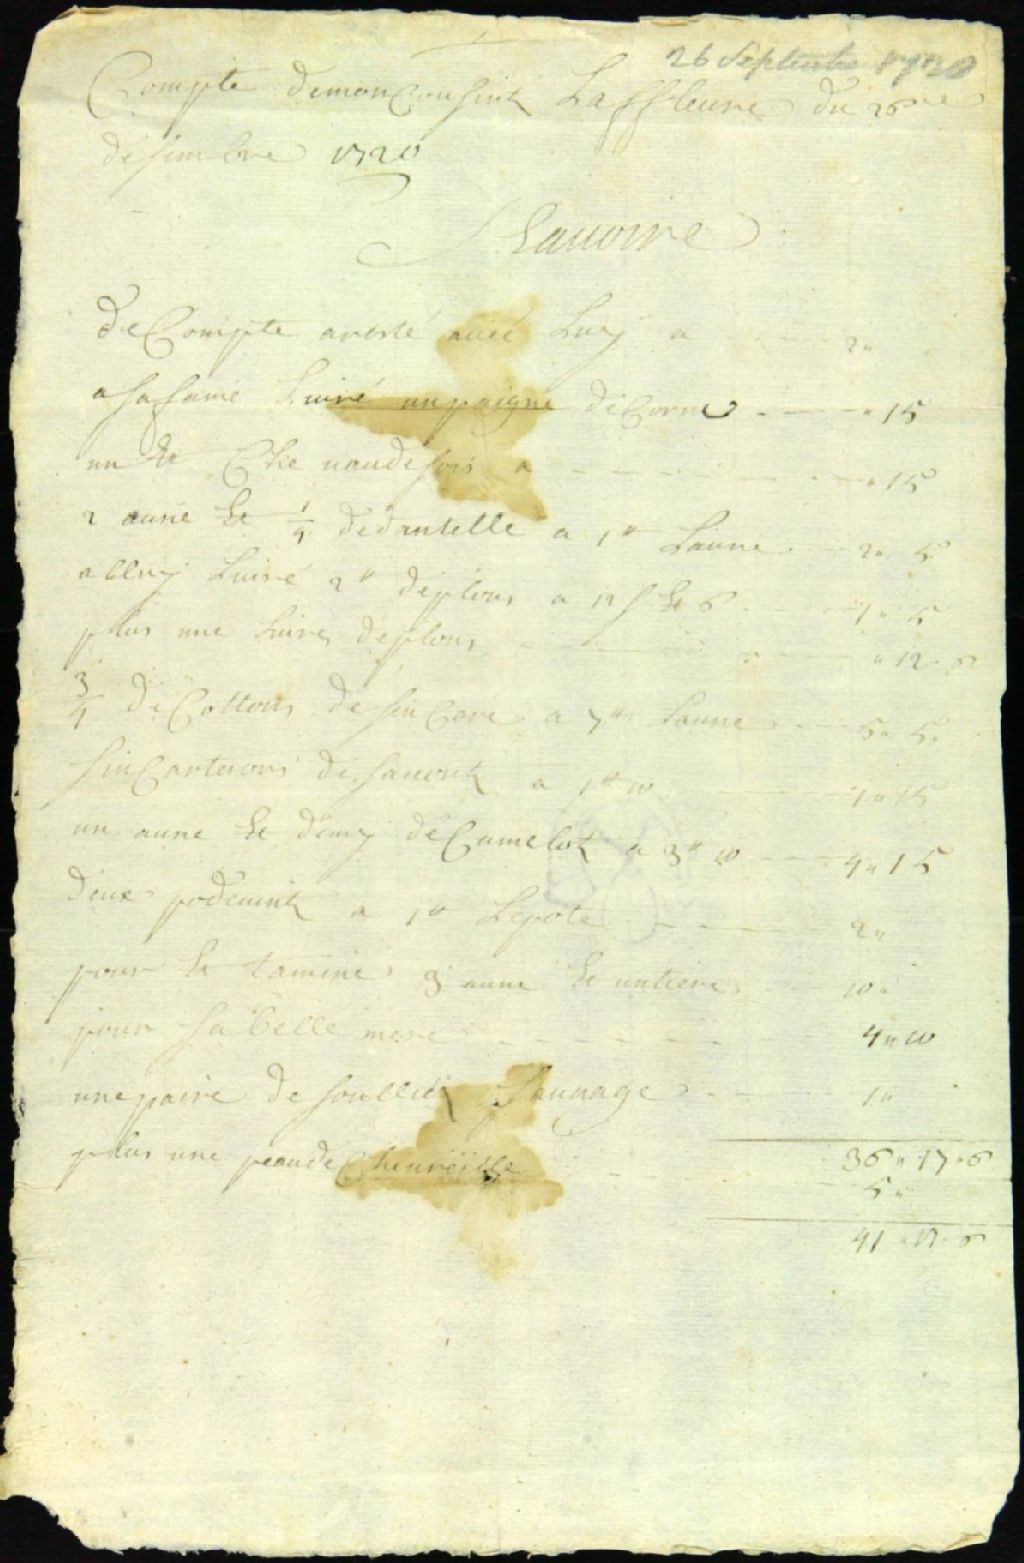 26 Septembre 1720
Compte demon Cousint Laffleure du 26me
desembre 1720
Sauoire
de Compte aresté auec Luy a 2"
a sa fame Liuré un paigne de Corne " 15
un Et Che naude sois a " 15
2 aune Et 1/4 de dantelle a 1" Laune 2" 5
a lluy Liuré 2" de plons a 12 s Et 6 1" 5
plus une Liure de plons " 12 " 6
3/4 de Cottons de sin Care a 7" Laune 5" 5"
sin Carterons de sauont a 1" 10 1" 15
un aune Et demy de Camelot a 3" 10 4" 15
deux podeuint a 1" Lepote 2"
pour Et tamine 3 aune Et untiere 10"
pour sa belle mere 4" 10
une paire de soullied sauuage 1"
36 " 17 " 6
plus une peau de Cheureille 5"
41 " 17 " 6